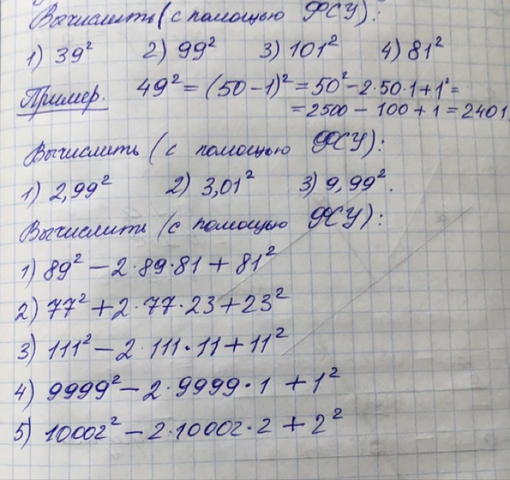 Вычислить (с помощью ФСУ):
1) 39² 2) 99² 3) 101² 4) 81²
Пример. 49² = (50-1)² = 50² - 2·50·1 + 1² =
= 2500 - 100 + 1 = 2401
Вычислить (с помощью ФСУ):
1) 2,99² 2) 3,01² 3) 9,99².
Вычислить (с помощью ФСУ):
1) 89² - 2·89·81 + 81²
2) 77² + 2·77·23 + 23²
3) 111² - 2·111·11 + 11²
4) 9999² - 2·9999·1 + 1²
5) 10002² - 2·10002·2 + 2²